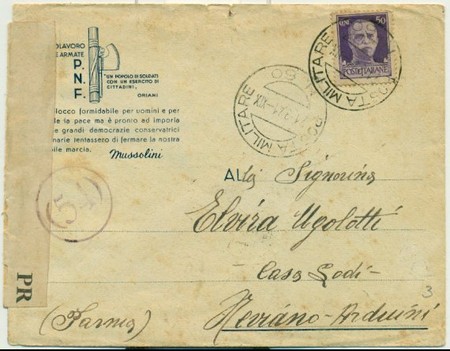 OLAVORO
E ARMATE
P.
N.
F.
"UN POPOLO DI SOLDATI
CON UN ESERCITO DI
CITTADINI,,
ORIANI
locco formidabile per uomini e per
le la pace ma è pronto ad imporla
e grandi democrazie conservatrici
marie tentassero di fermare la nostra
bile marcia.
Mussolini
POSTA MILITARE
N. 50
POSTA MILITARE
50
POSTE ITALIANE
54
PR
Alla Signorina
Elvira Ugolotti
Casa Lodi-
Neviano-Arduini
(Parma)
3